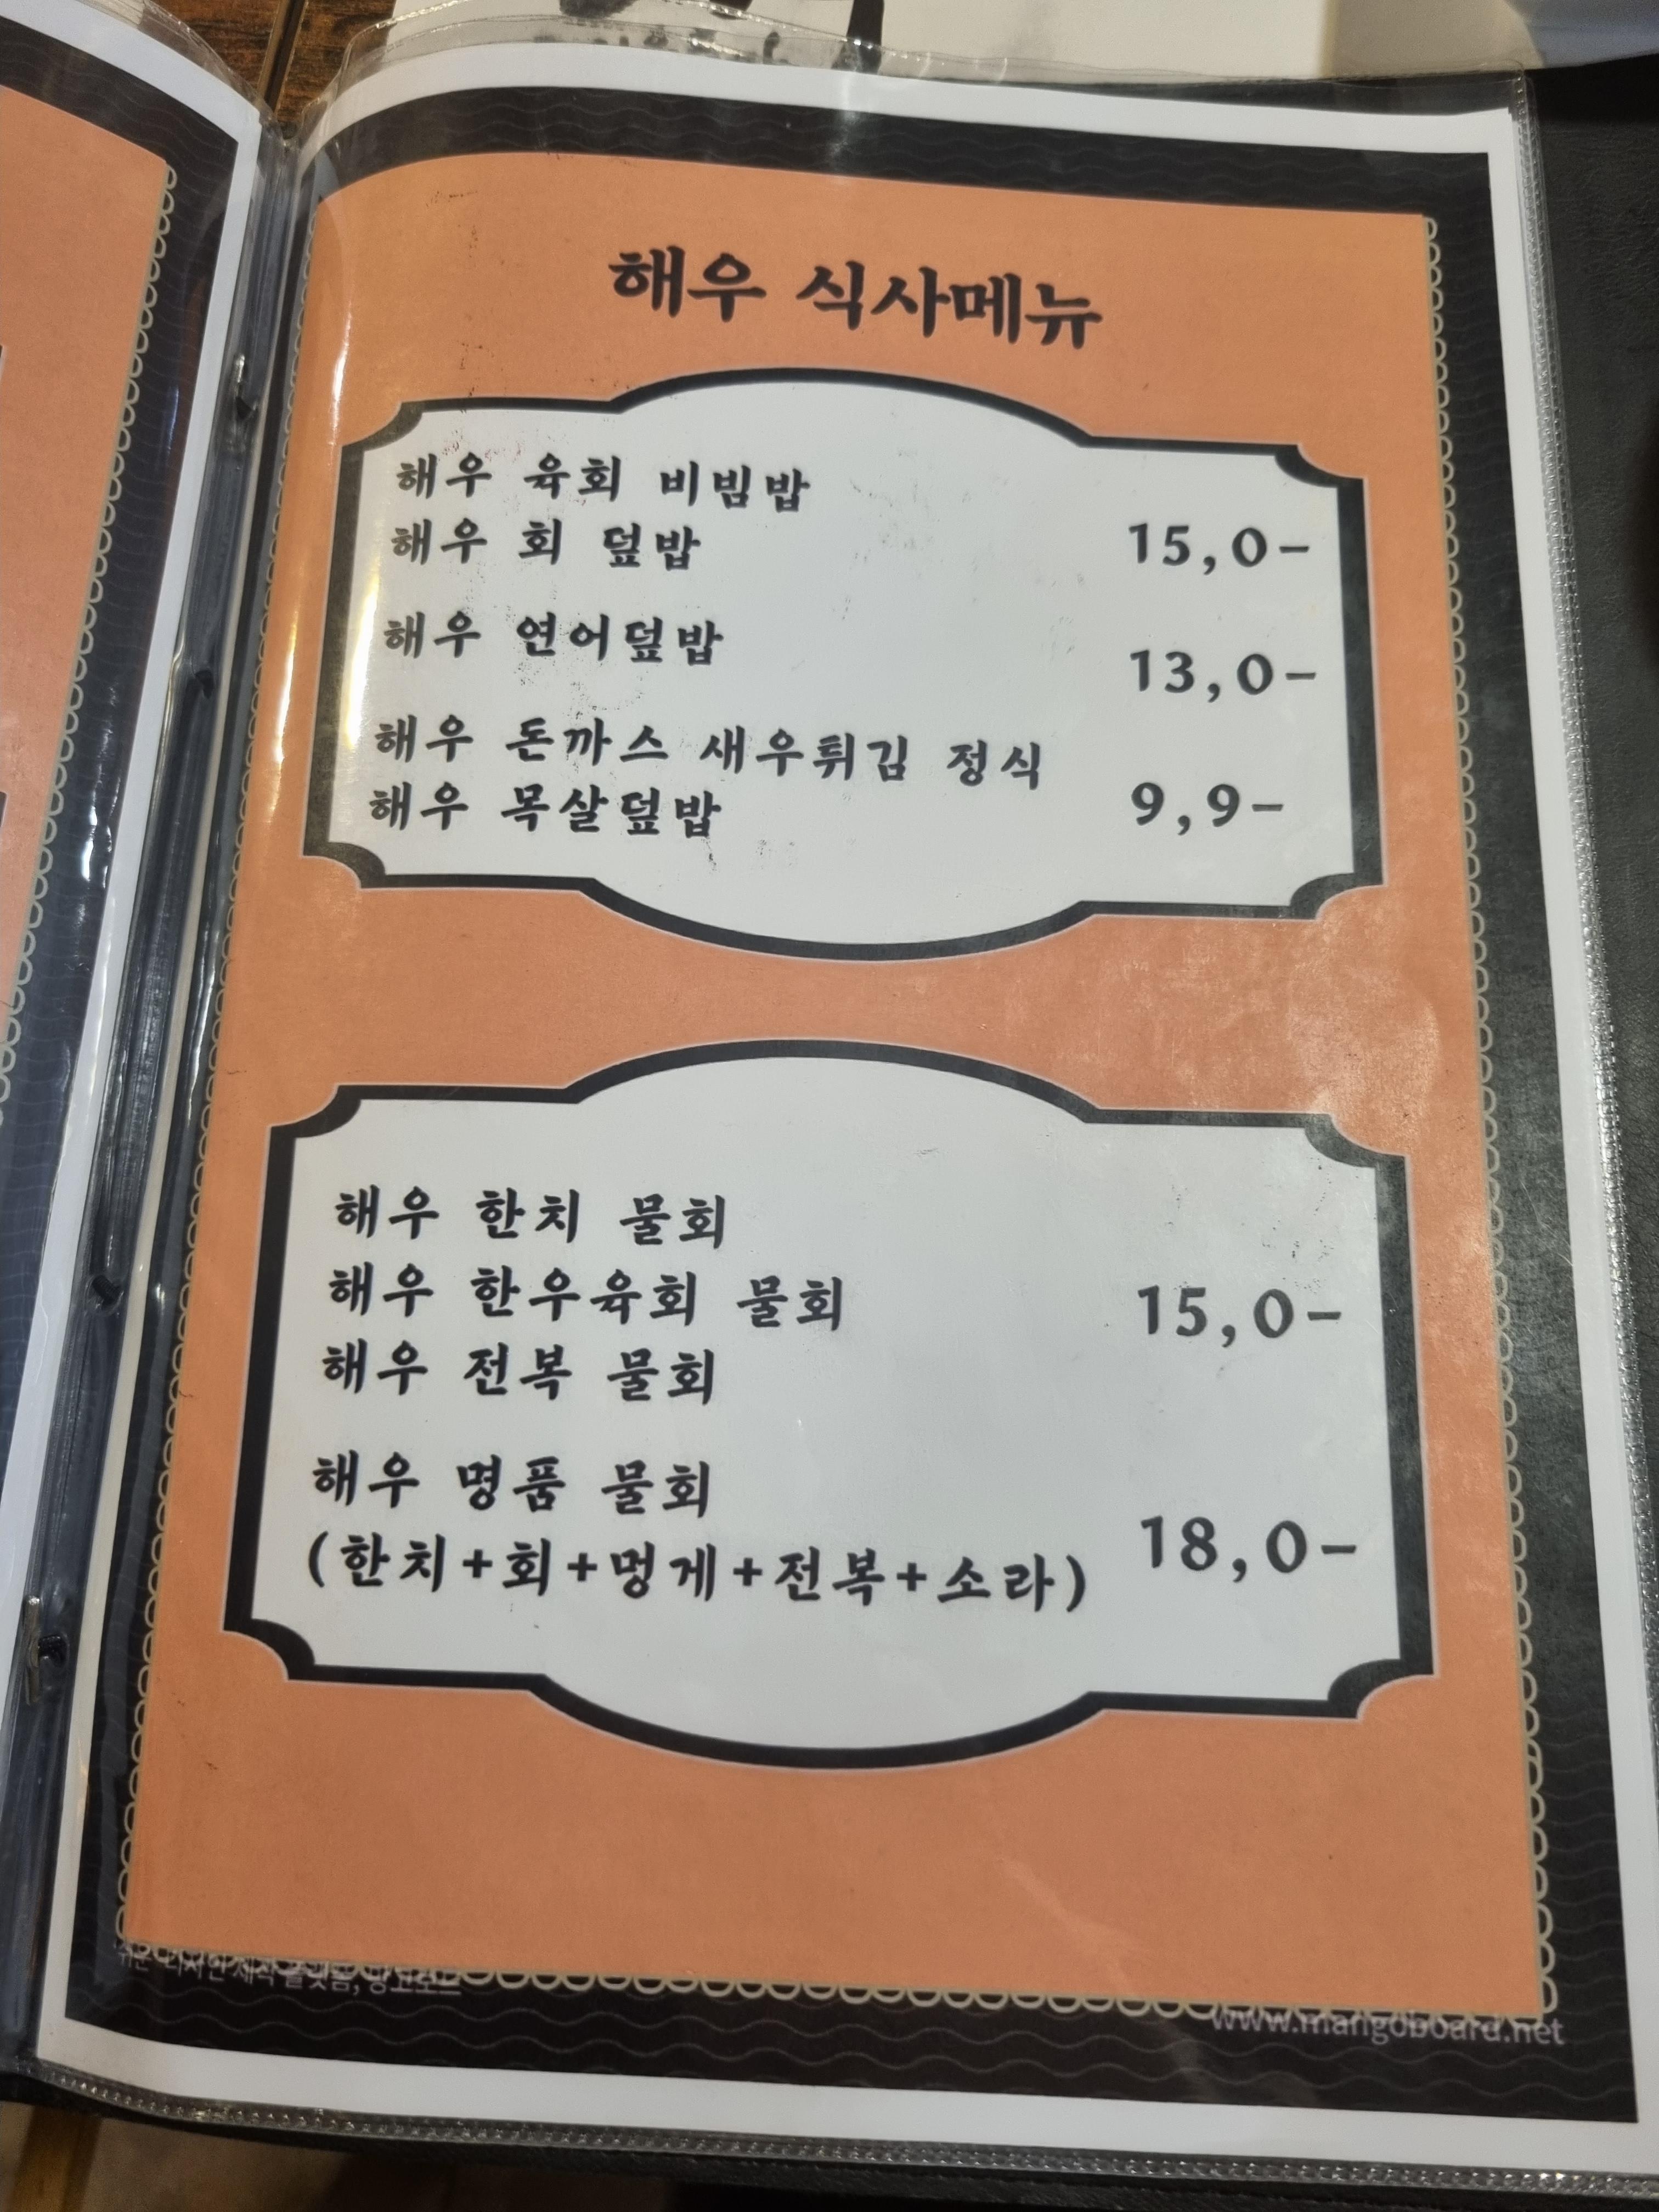 해우 식사메뉴
해우 육회 비빔밥
해우 회 덮밥 15,0-
해우 연어덮밥 13,0-
해우 돈까스 새우튀김 정식
해우 목살덮밥 9,9-
해우 한치 물회
해우 한우육회 물회 15,0-
해우 전복 물회
해우 명품 물회
(한치+회+멍게+전복+소라) 18,0-
쉬운 디자인 제작 플랫폼, 망고보드
www.mangoboard.net